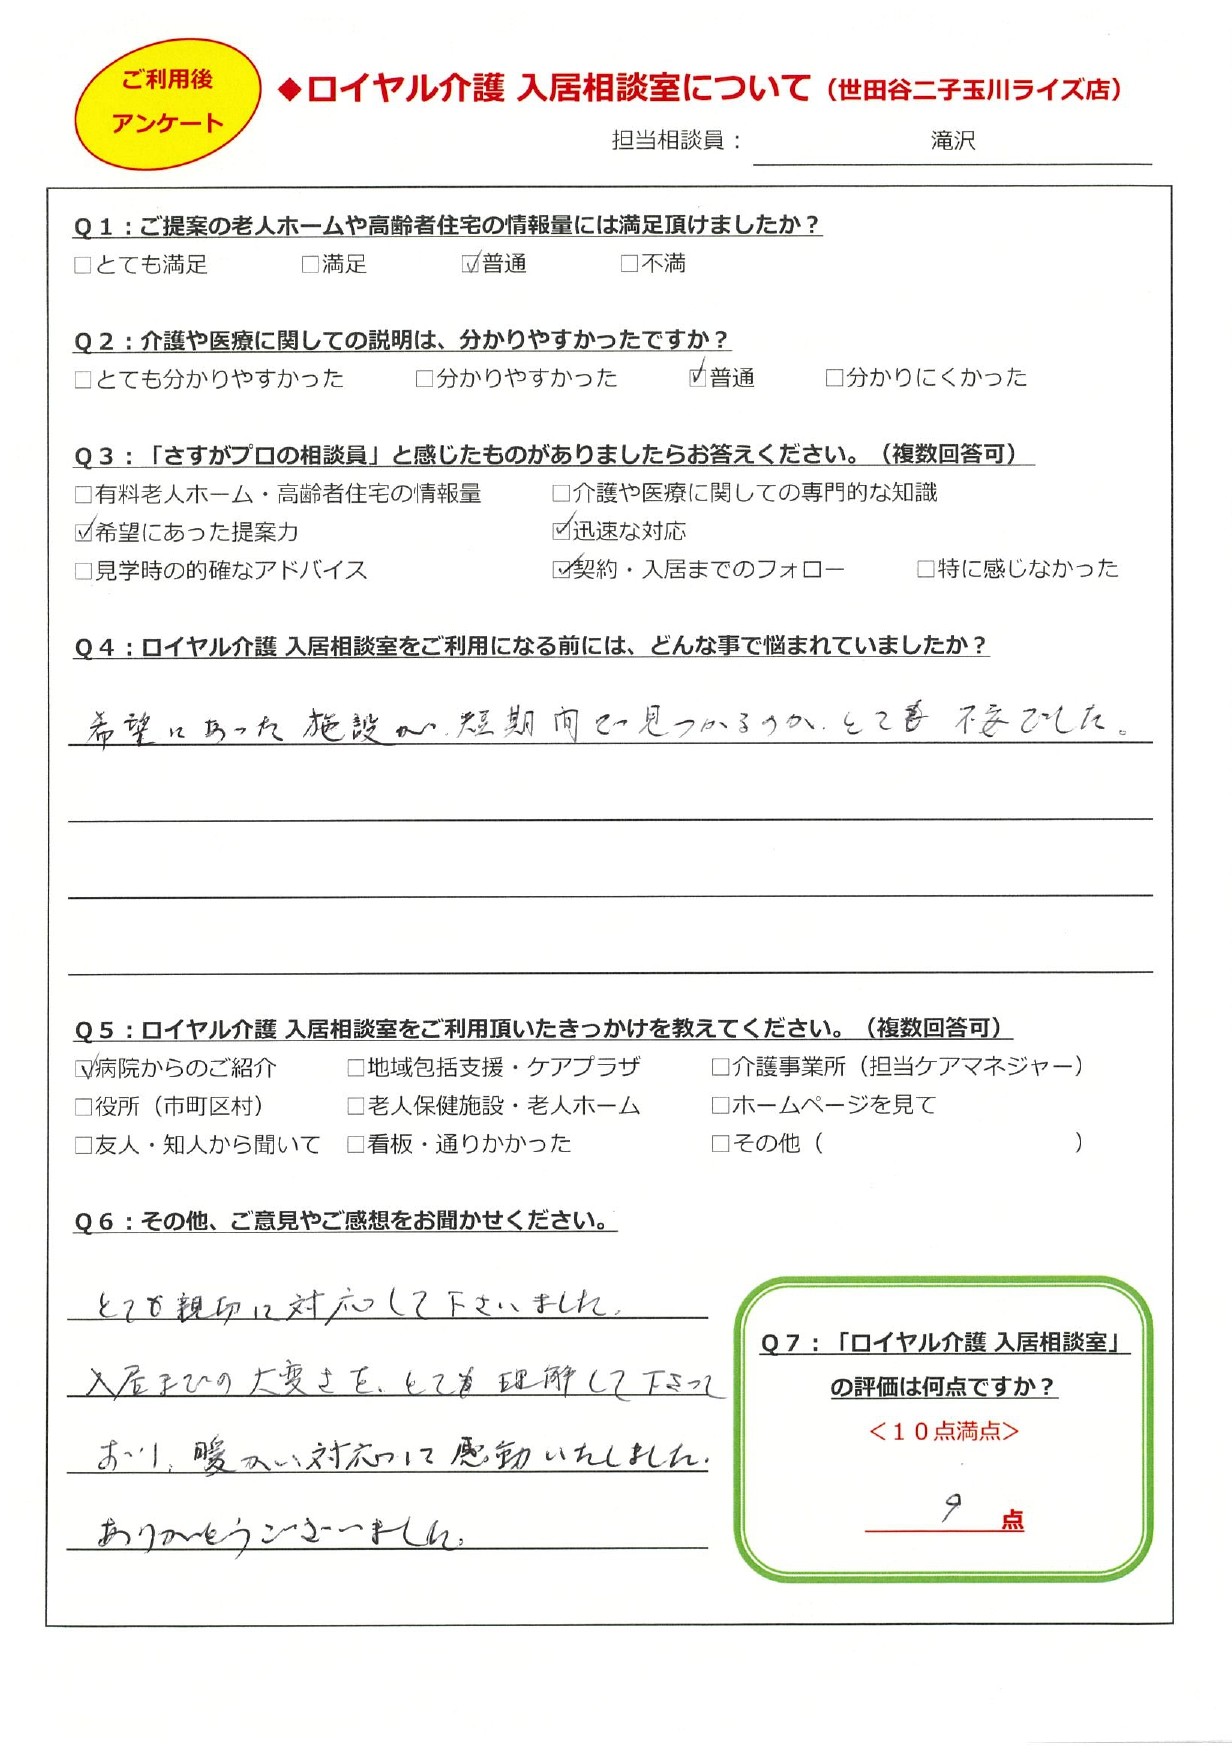 ご利用後
アンケート
◆ロイヤル介護 入居相談室について（世田谷二子玉川ライズ店）
担当相談員： 滝沢
Q１：ご提案の老人ホームや高齢者住宅の情報量には満足頂けましたか？
□とても満足 □満足 ☑普通 □不満
Q２：介護や医療に関しての説明は、分かりやすかったですか？
□とても分かりやすかった □分かりやすかった ☑普通 □分かりにくかった
Q３：「さすがプロの相談員」と感じたものがありましたらお答えください。（複数回答可）
□有料老人ホーム・高齢者住宅の情報量 □介護や医療に関しての専門的な知識
☑希望にあった提案力 ☑迅速な対応
□見学時の的確なアドバイス ☑契約・入居までのフォロー □特に感じなかった
Q４：ロイヤル介護 入居相談室をご利用になる前には、どんな事で悩まれていましたか？
希望にあった施設が、短期間で見つかるのか、とても不安でした。
Q５：ロイヤル介護 入居相談室をご利用頂いたきっかけを教えてください。（複数回答可）
☑病院からのご紹介 □地域包括支援・ケアプラザ □介護事業所（担当ケアマネジャー）
□役所（市町区村） □老人保健施設・老人ホーム □ホームページを見て
□友人・知人から聞いて □看板・通りかかった □その他（ ）
Q６：その他、ご意見やご感想をお聞かせください。
とても親切に対応して下さいました。
入居までの大変さを、とても理解して下さって
おり、暖かい対応に感動いたしました。
ありがとうございました。
Q７：「ロイヤル介護 入居相談室」
の評価は何点ですか？
＜１０点満点＞
9 点